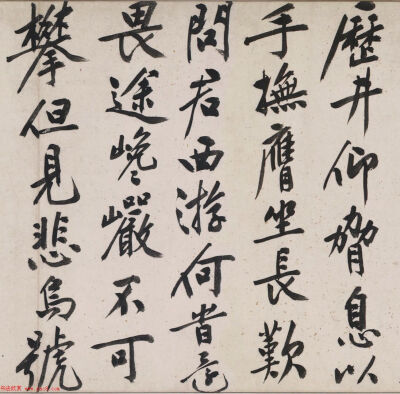 歷井仰脅息以
手撫膺坐長歎
問君西游何旹還
畏途巉巖不可
攀但見悲鳥號